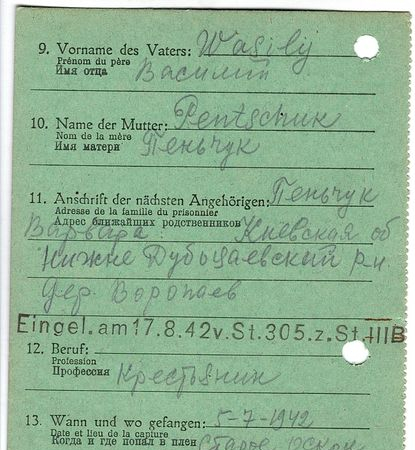 9. Vorname des Vaters: Wasilÿ
Prénom du père
Имя отца Василий
10. Name der Mutter: Pentschuk
Nom de la mère
Имя матери Пеньчук
11. Anschrift der nächsten Angehörigen: Пеньчук
Adresse de la famille du prisonnier
Адрес ближайших родственников
Варвара Киевская об
Нижне Дубошаевский р.н
дер. Воропаев
Eingel. am 17.8.42 v. St. 305. z. St. III B
12. Beruf:
Profession
Профессия Крестьянин
13. Wann und wo gefangen: 5-7-1942
Date et lieu de la capture
Когда и где попал в плен Старое Оскол